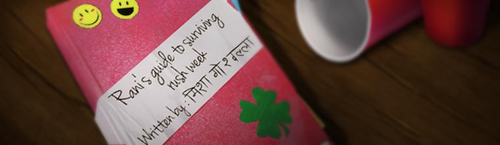 Rani's guide to surviving
rush week
Written by: निशा गौ २ वल्ला